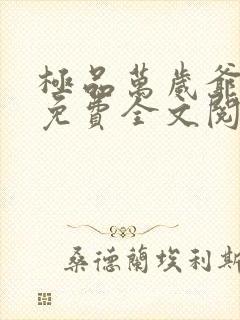 極品萬歲爺
免費全文閱
桑德蘭埃利斯